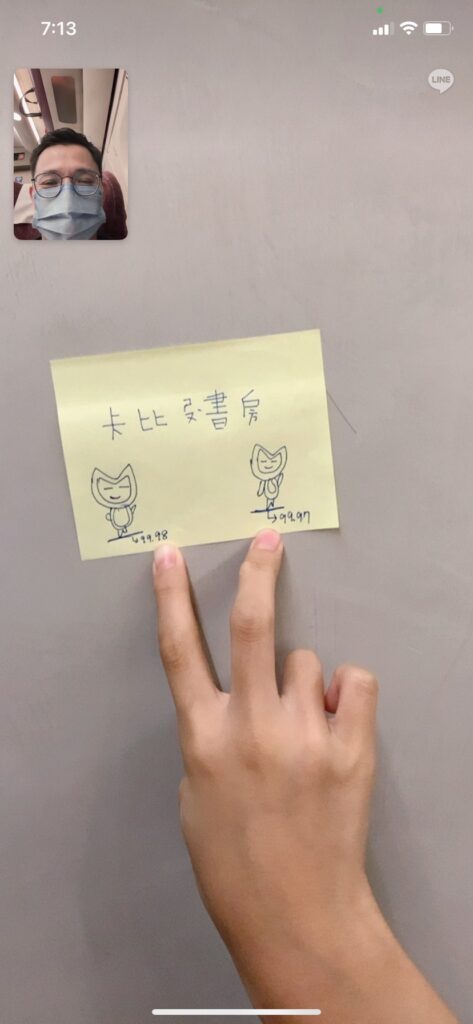 7:13
LINE
卡比書房
99.98
99.97